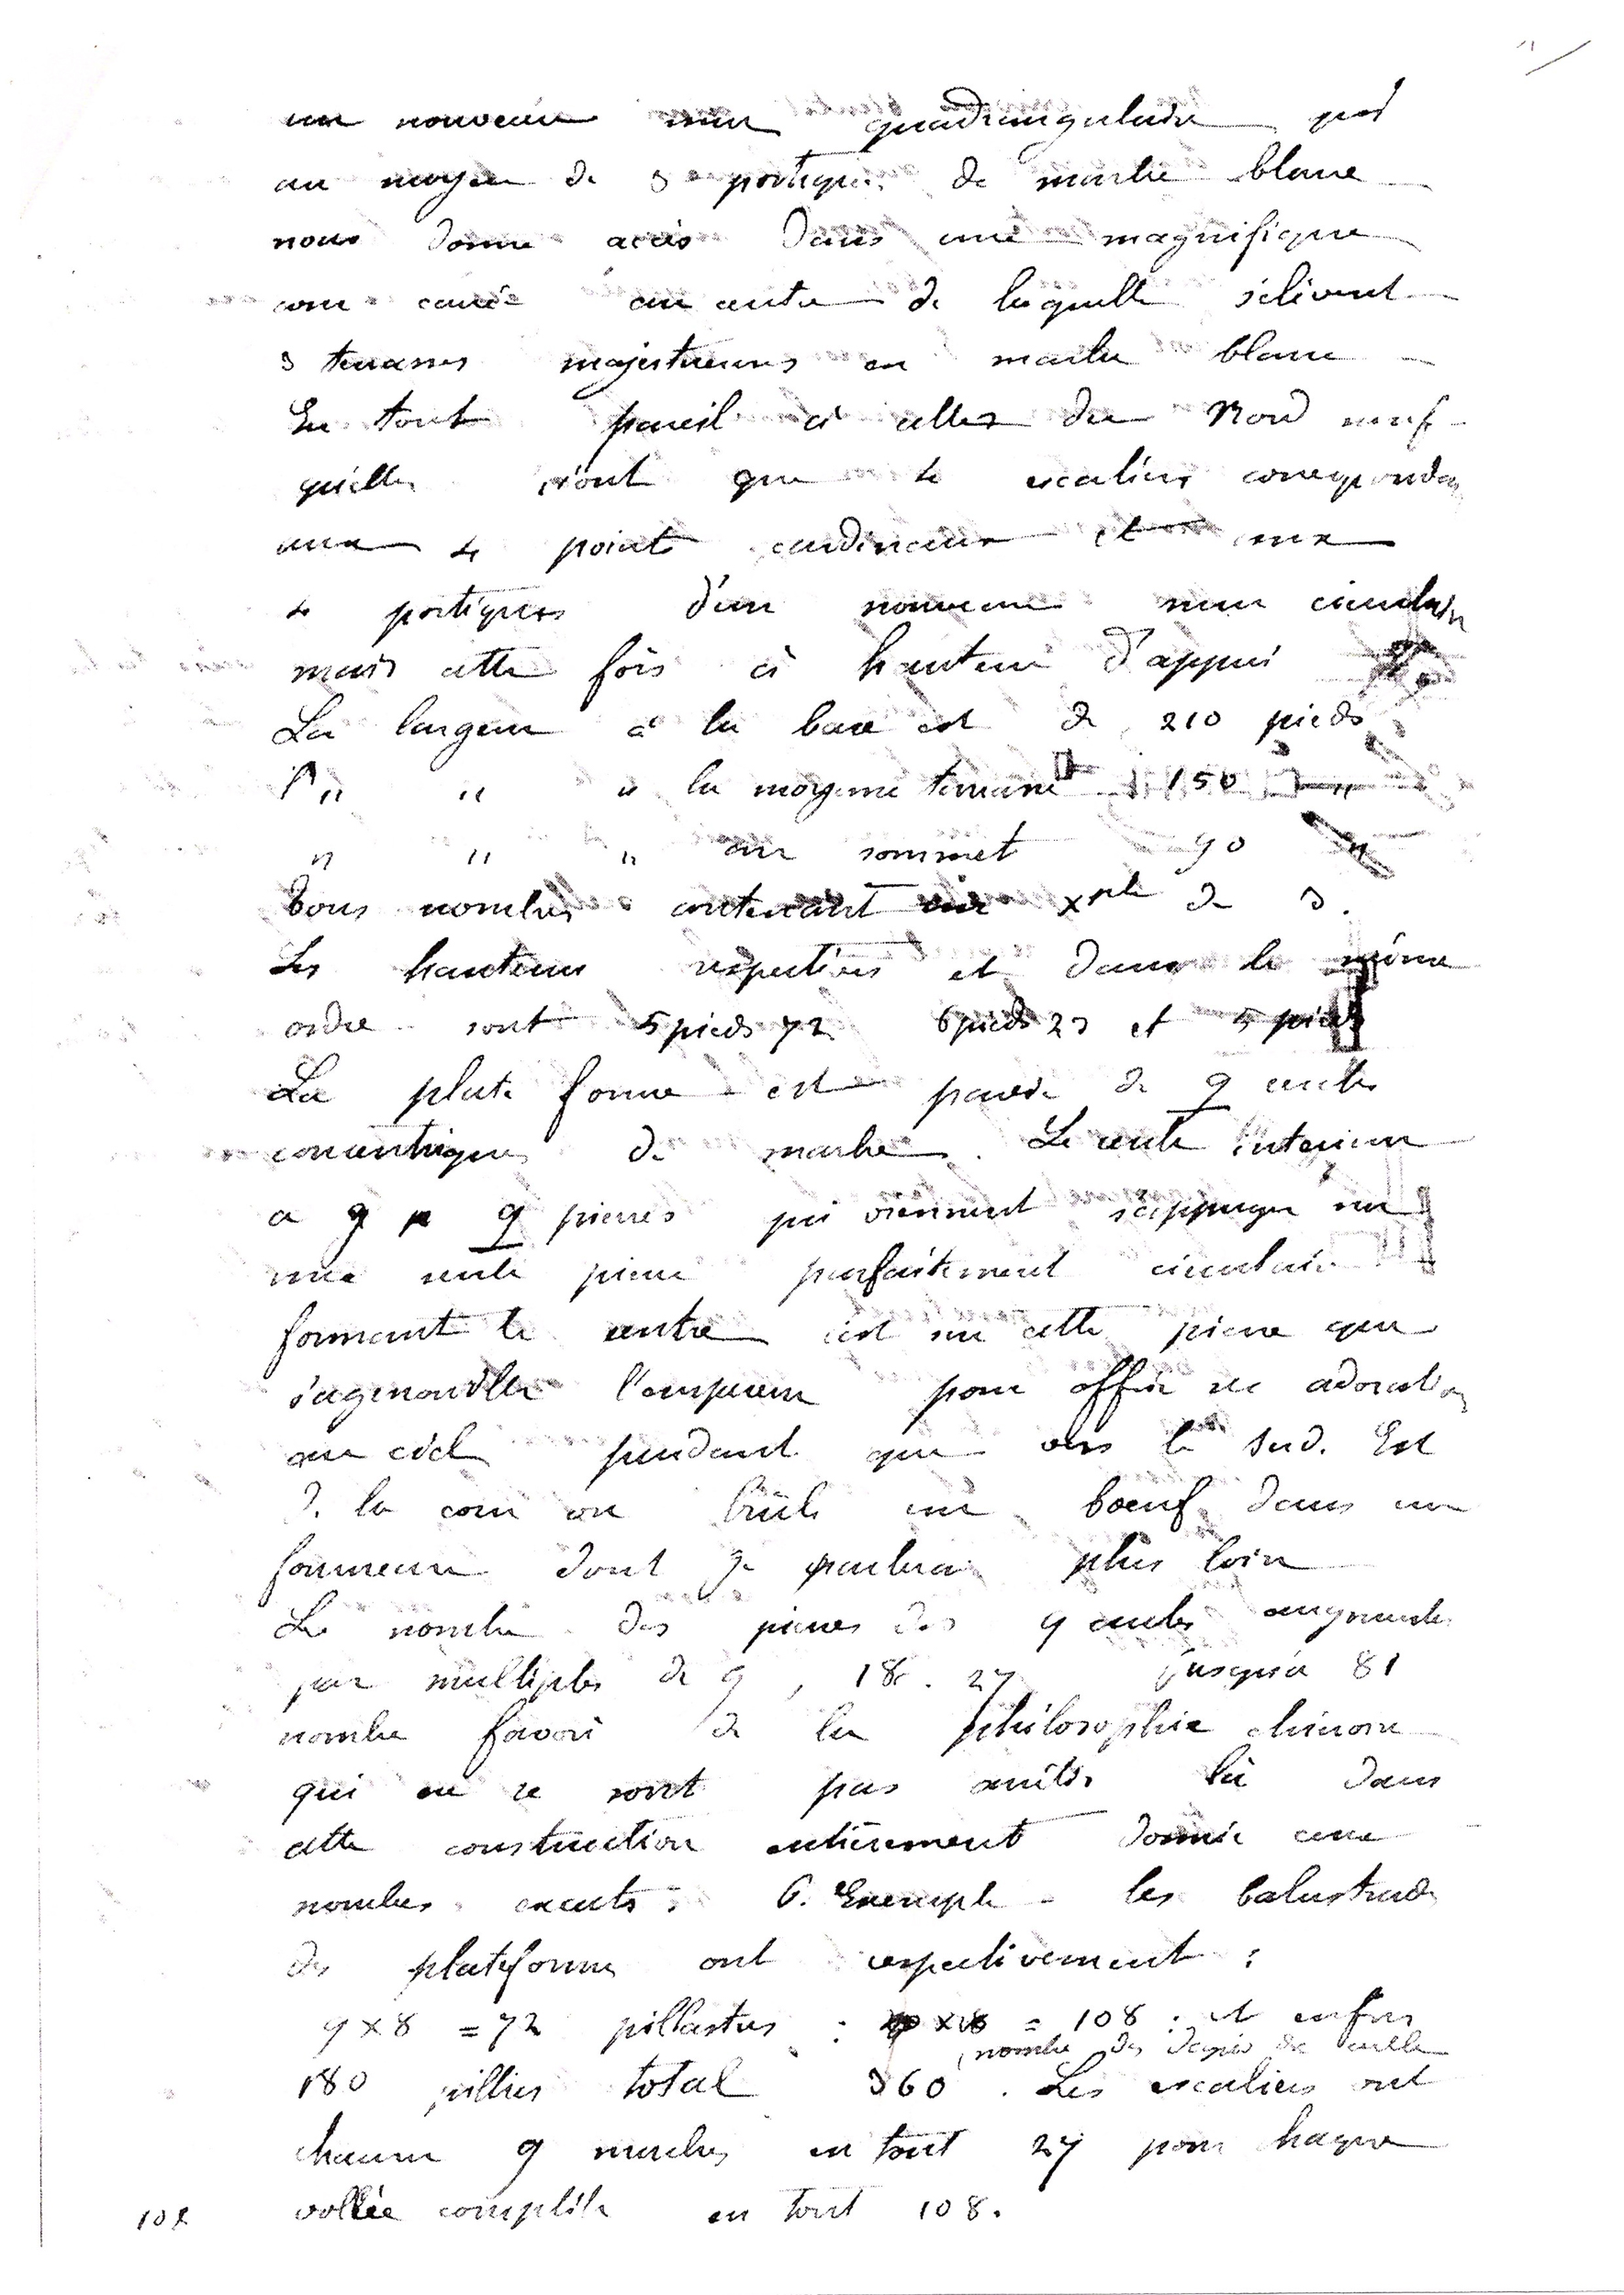 un nouveau mur quadrangulaire qui
au moyen de 3 portiques de marbre blanc
nous donne accès dans une magnifique
cour carrée au centre de laquelle s'élèvent
3 terrasses majestueuses en marbre blanc
En tout pareil à celles du Nord sauf
qu'elles n'ont que 4 escaliers correspondan
aux 4 points cardinaux et aux
4 portiques d'un nouveau mur circulaire
mais cette fois à hauteur d'appui
La largeur à la base est de 210 pieds
" " à la moyenne terrasse 150 "
" " " au sommet 90 "
Tous nombres contenant un xple de 3.
Les hauteurs respectives et dans le même
ordre sont 5 pieds 72 6 pieds 23 et 5 pieds
La plate forme est pavée de 9 cercles
concentriques de marbre. Le cercle interieur
a 9 pierres qui viennent s'appuyer sur
une seule pierre parfaitement circulaire
formant le centre c'est sur cette pierre que
s'agenouille l'empereur pour offrir ses adoration
au ciel pendant que vers le Sud. Est
de la cour on brûle un boeuf dans un
fourneau dont je parlerai plus loin
Le nombre des pierres des 9 cercles augmente
par multiples de 9, 18. 27 jusqu'à 81
nombre favori de la philosophie chinoise
qui ne se sont pas arrêtés là dans
cette construction entièrement
nombres exacts: Exemple - les balustrades
des plateformes ont respectivement:
9 x 8 = 72 pillastres : = 108 : et enfin
nombre des degrés du cercle
180 pilliers total 360. Les escaliers ont
chacun 9 marches en tout 27 pour chaque
vollée complète en tout 108.
102